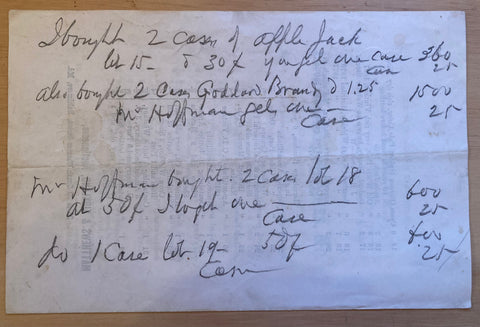 I bought 2 cases of apple Jack
lot 15 - @ 30¢ you get one case 360
Case 25
also bought 2 Cases Goddard Brandy @ 1.25 1500
Mr Hoffman gets one Case 25
Mr Hoffman bought 2 Cases lot 18
at 50¢ I to get one 600
Case 25
do 1 Case lot 19 - 50¢ 600
Case 25